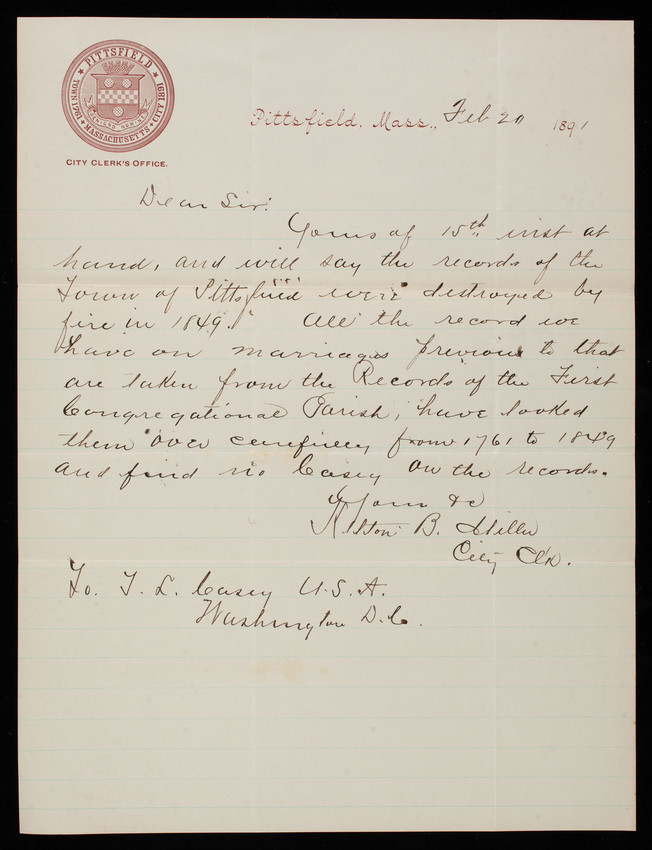 PITTSFIELD
TOWN 1761
CITY 1891
MASSACHUSETTS
CITY CLERK'S OFFICE.
Pittsfield, Mass., Feb 20 1891
Dear Sir:
Yours of 15th inst at
hand, and will say the records of the
Town of Pittsfield were destroyed by
fire in 1849. All the record we
have on marriages previous to that
are taken from the Records of the First
Congregational Parish, have looked
them over carefully from 1761 to 1849
and find no Casey on the records.
Yours &c
B. Miller
City Clk.
To. T. L. Casey U.S.A.
Washington D.C.